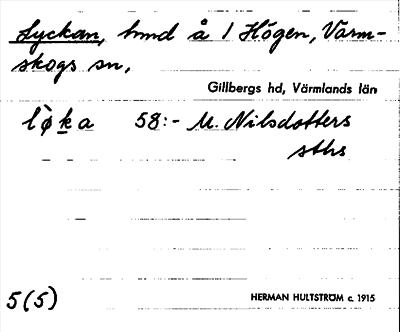 Lyckan, hmd å 1 Högen, Värm-
skogs sn.
Gillbergs hd, Värmlands län
58:- M. Nilsdotters
sths
HERMAN HULTSTRÖM c. 1915
5(5)